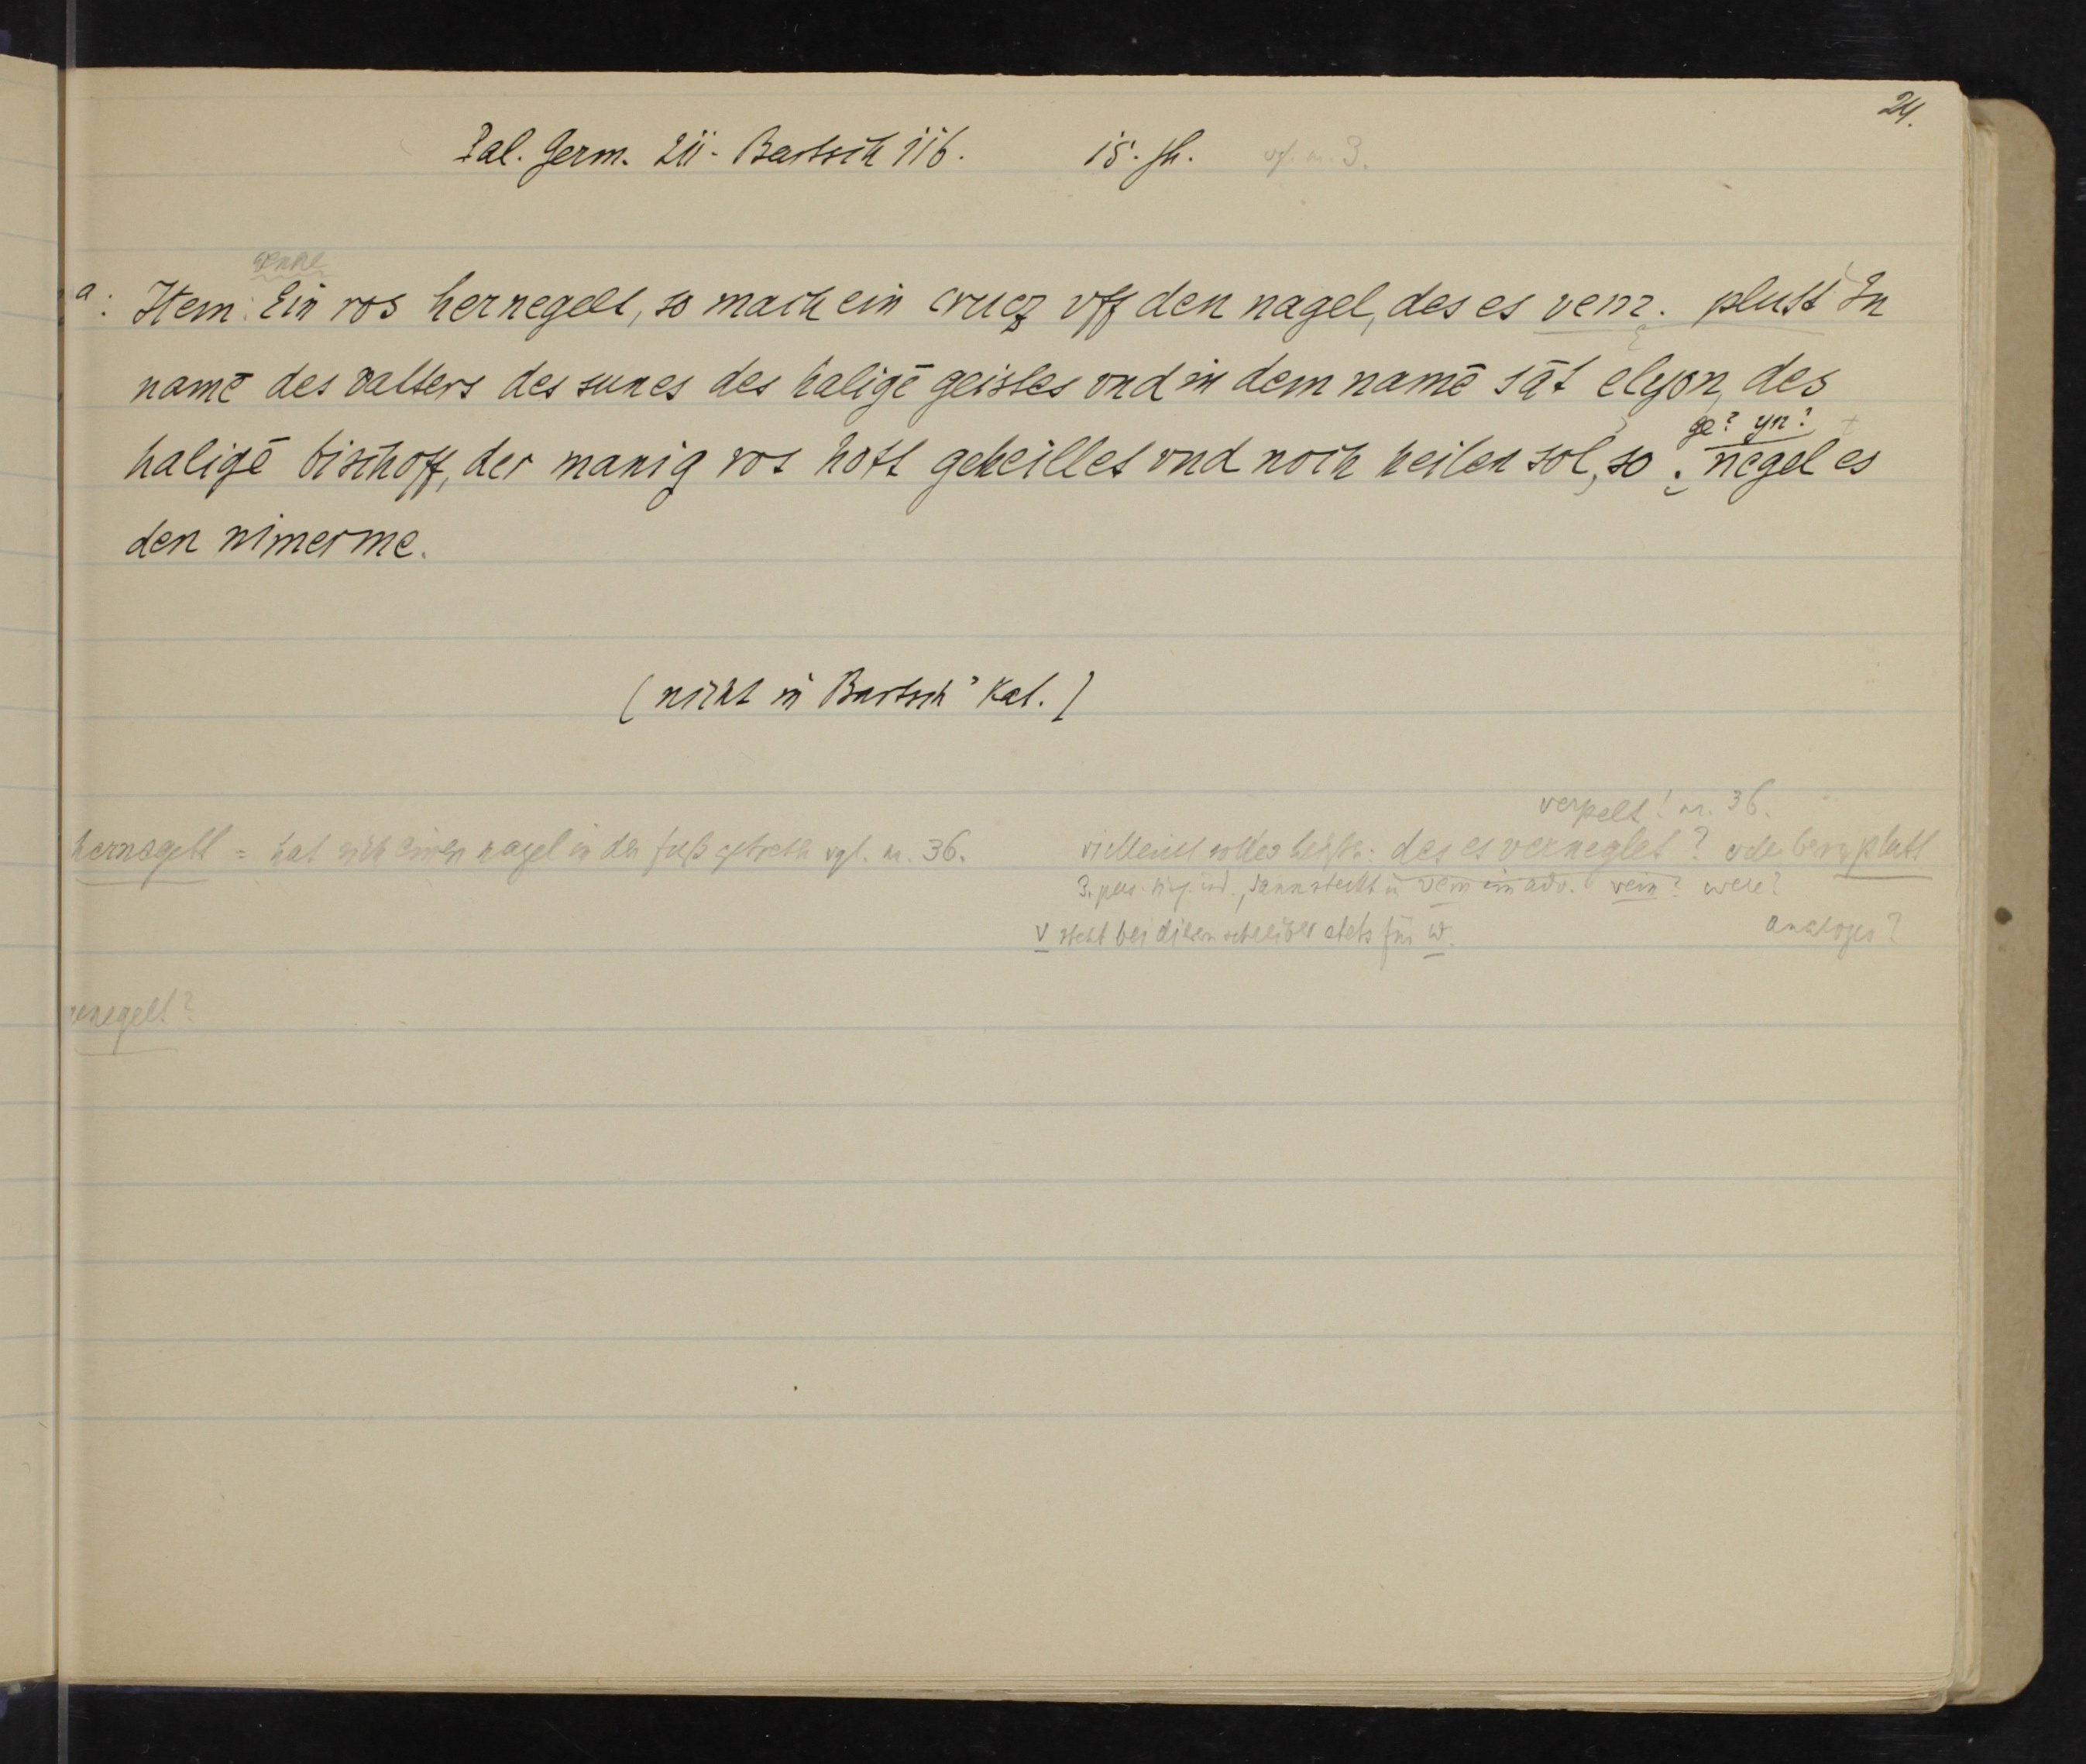 24.
Pal. Germ. 211 - Bartsch 116. 15. jh. vgl. nr. 3.
wenne
a: Item: Ein ros hernegelt, so mach ein crucz vff den nagel, des es vem. plutt In
namē des vatters des sunes des haligē geistes vnd in dem namē sāt elyon, des
ge? yn?
haligē bischoff, der manig ros hott geheillet vnd noch heilen sol, so : negel es
den nimerme.
(nicht in Bartsch' Kat.)
verpelt! nr. 36.
hernegelt = hat sich einen nagel in den fuß getreten vgl. nr. 36. vielleicht soll es heißen: des es verneglet? oder plutt
3. pers. sing. ind., dann steckt in vem ein adv. vein? were?
v steht bei diesem schreiber stets für w. analoges?
enegelt?